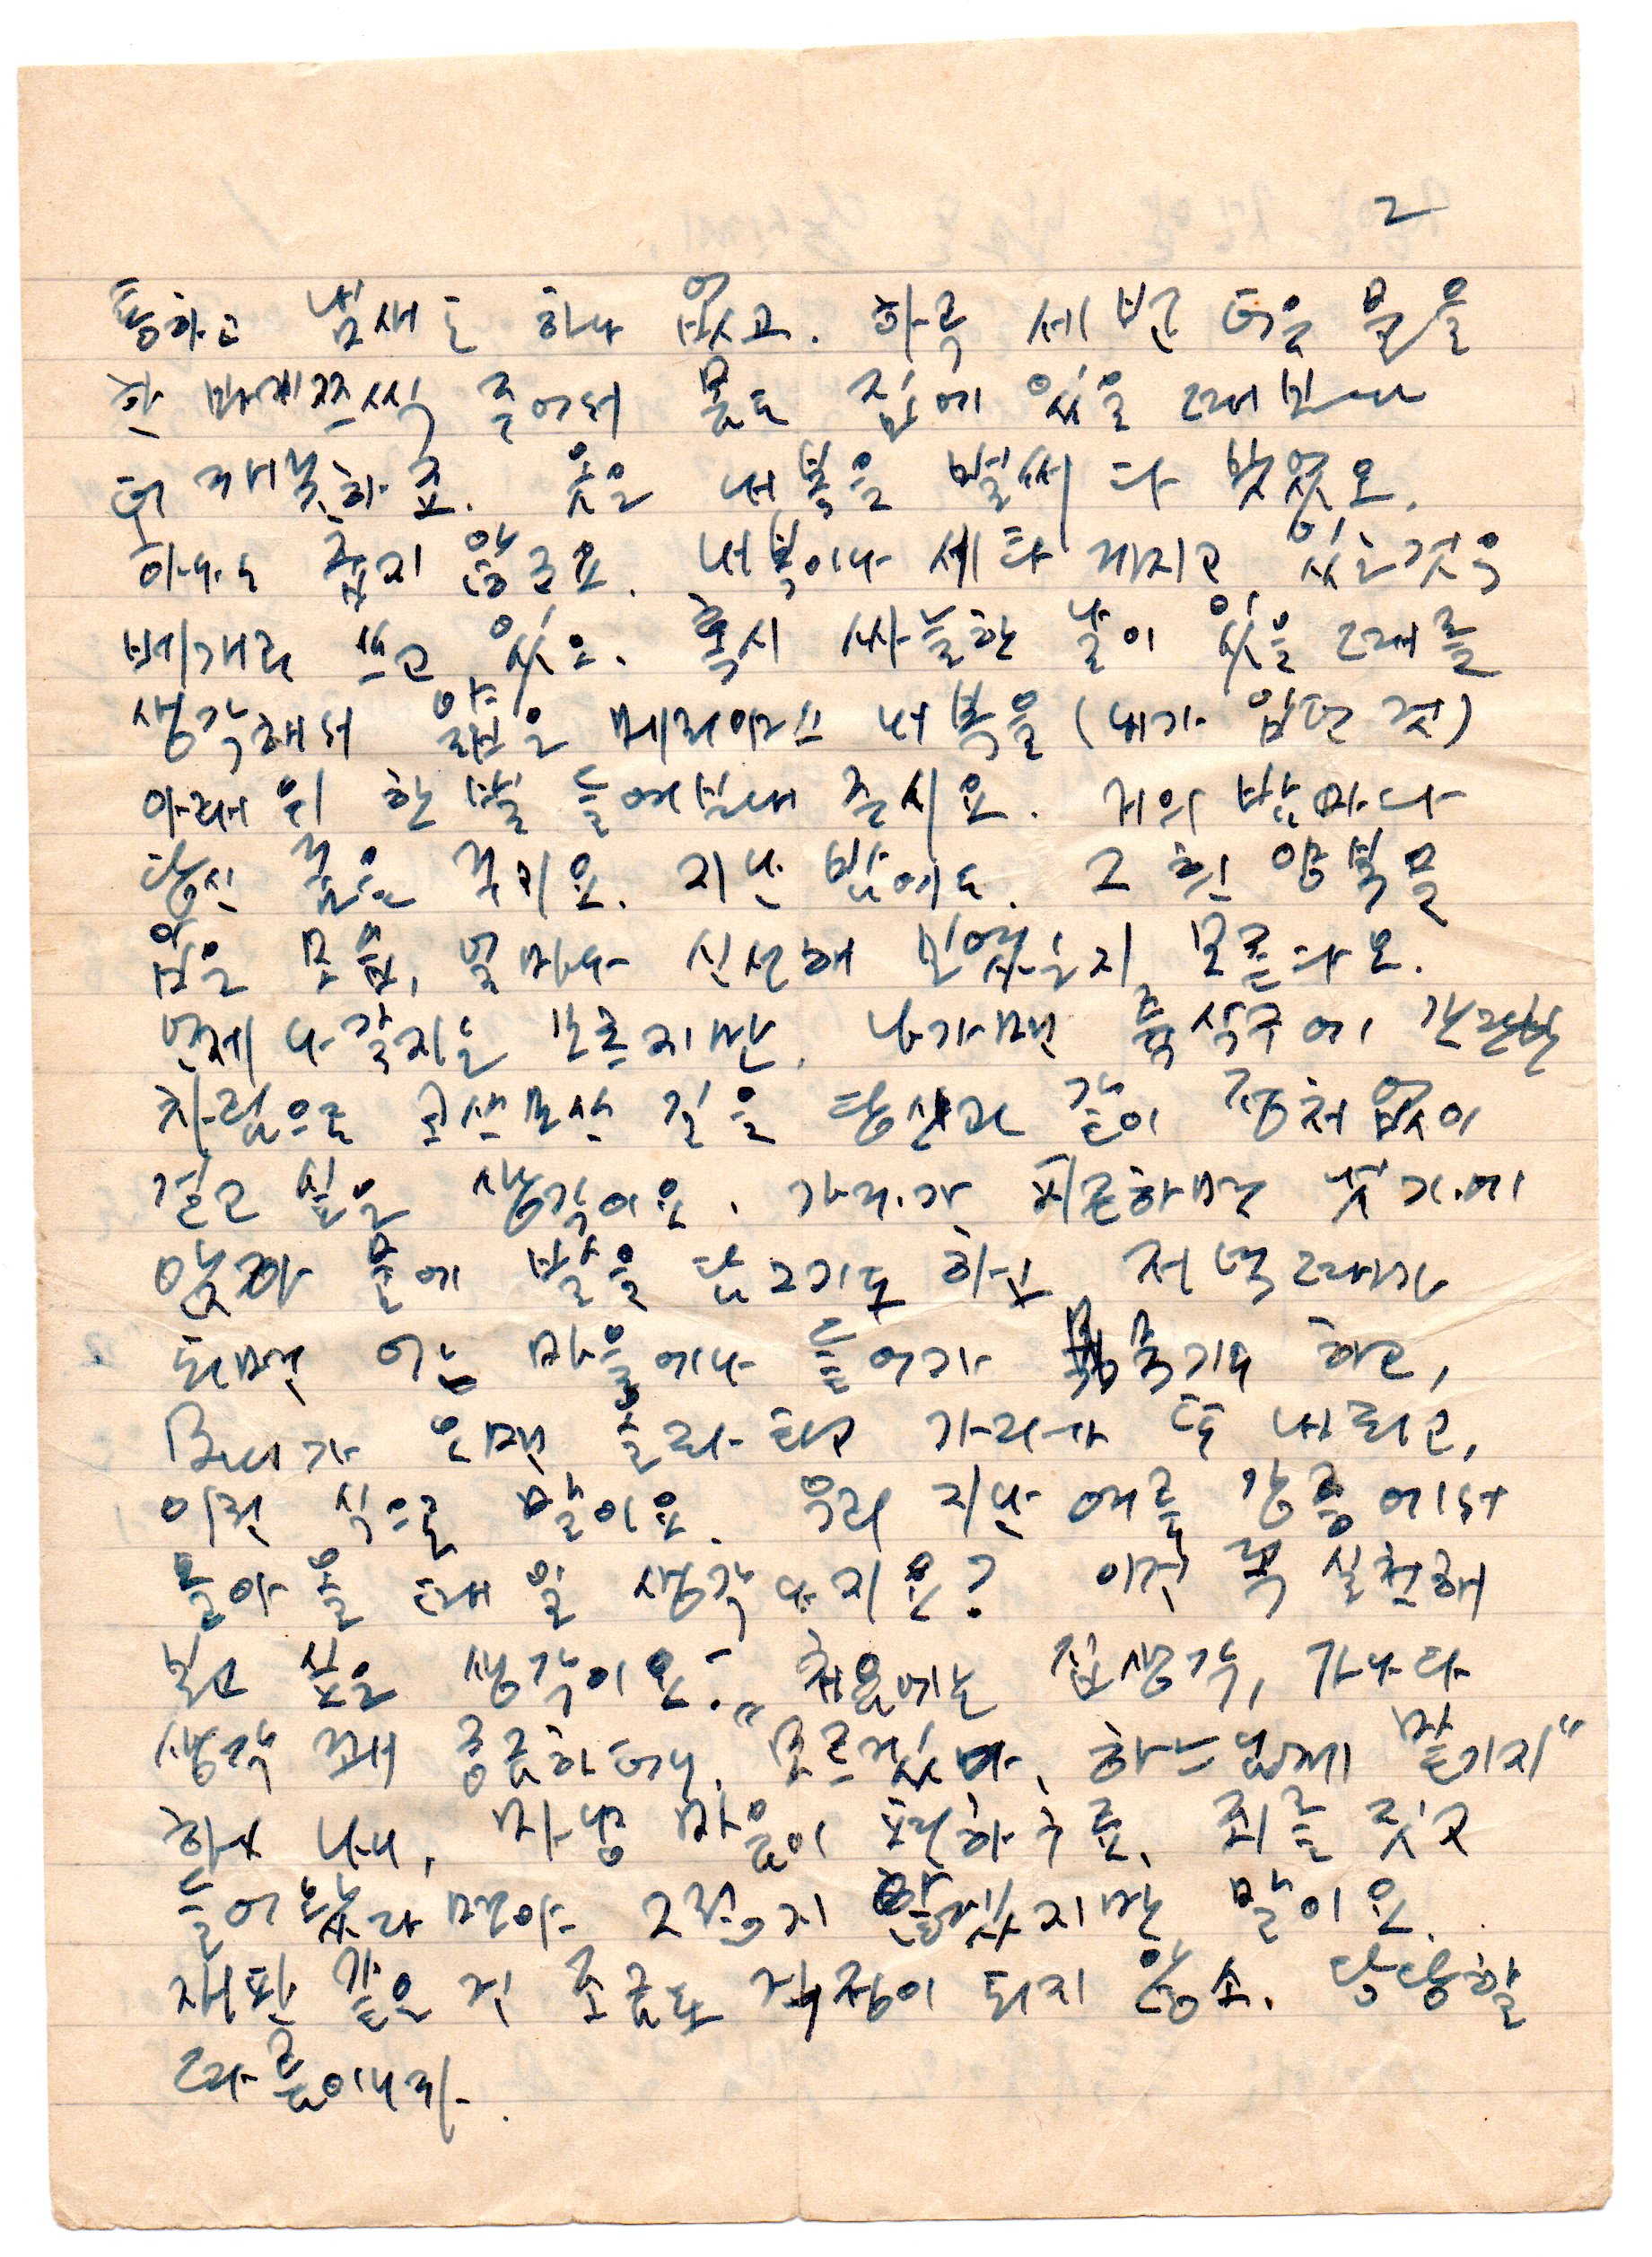 2
통하고 냄새는 하나 없고. 하루 세번 더운 물을
한 바께쯔씩 주어서 몸도 집에 있을 때보다
더 깨끗하죠. 옷은 내복을 벌써 다 벗었오.
하나도 춥지 않군요. 내복이나 세타 가지고 있는것은
베개로 쓰고 있오. 혹시 싸늘한 날이 있을 때를
생각해서 얇은 메리야스 내복을 (내가 입던 것)
아래 위 한 벌 들여보내 주시요. 거의 밤마다
당신 꿈은 꾸지요. 지난 밤에도. 그 흰 양복을
입은 모습, 얼마나 신선해 보였는지 모른다오.
언제 나갈지는 모르지만, 나가면 륙싹구에 간편한
차림으로 교외 길을 당신과 같이 정처없이
걷고 싶은 생각이오. 다리가 피곤하면 냇가에
앉아 물에 발을 담그기도 하고 저녁때가
되면 어느 마을에나 들어가 묵기도 하고,
Bus가 오면 올라타고 가다가 또 내리고,
이런 식으로 말이오. 우리 지난 여름 강릉에서
돌아올 때 일 생각나지요? 이건 꼭 실천해
보고 싶은 생각이오. 처음에는 집생각, 가나다
생각 꽤 궁금하더니, "모르겠다, 하느님께 맡기지"
하고 나니, 마냥 마음이 편하구료. 죄를 짓고
들어왔다면야 그렇지 않겠지만 말이오.
재판 같은 건 조금도 걱정이 되지 않소. 담당할
따름이니까.